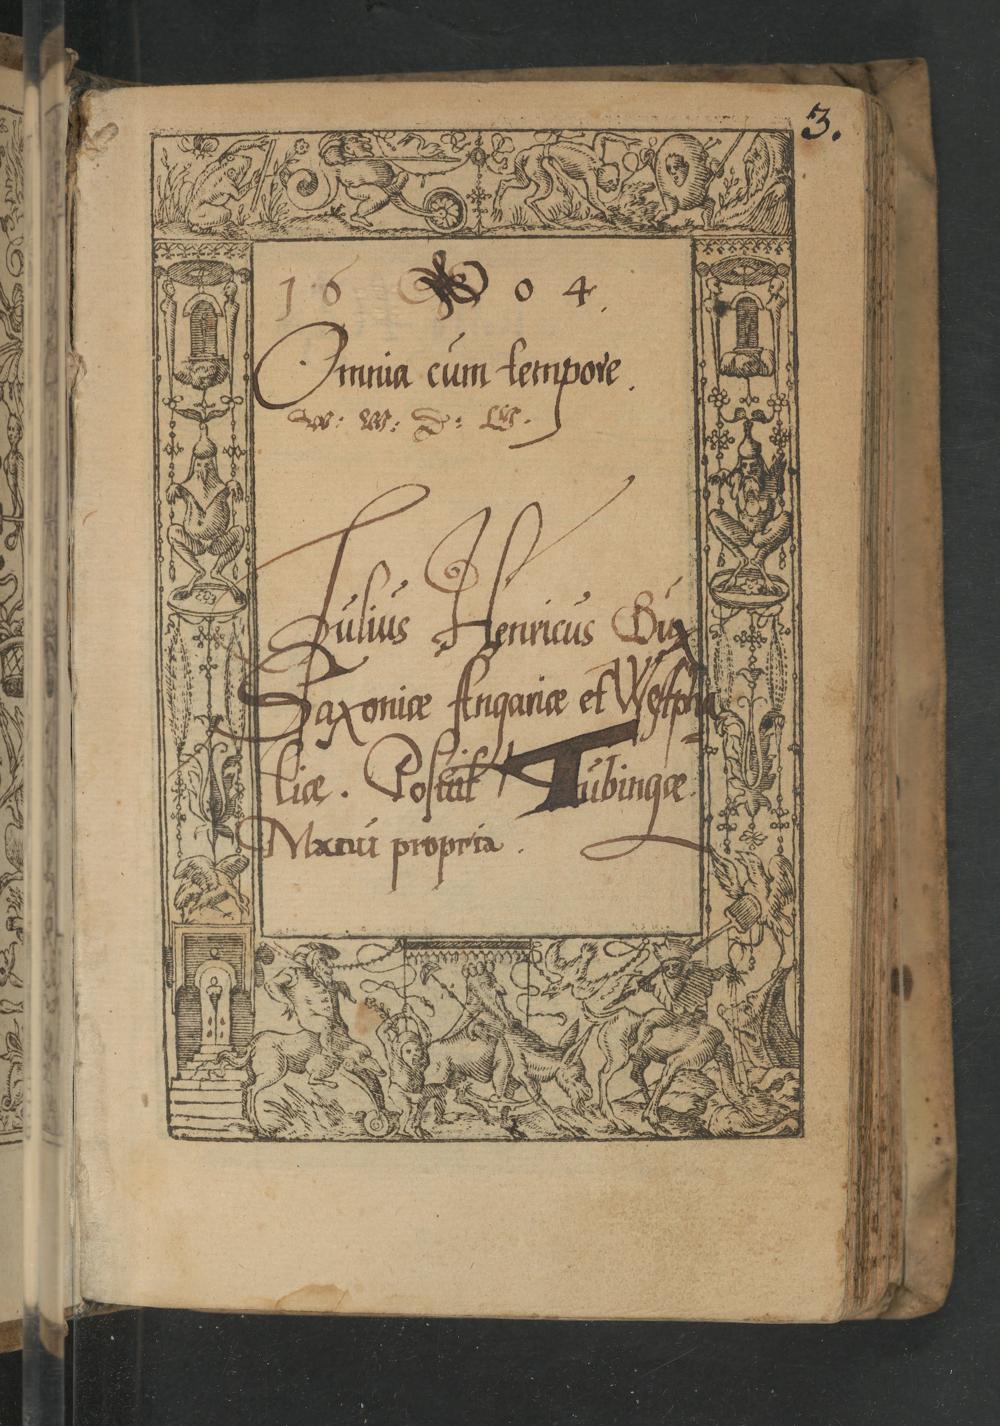 3.
16 04.
Omnia cum tempore.
W: W: D: W.
Julius Henricus Dux
Saxoniæ Angariæ et Westpha
liæ. Tubingæ.
Manu propria.